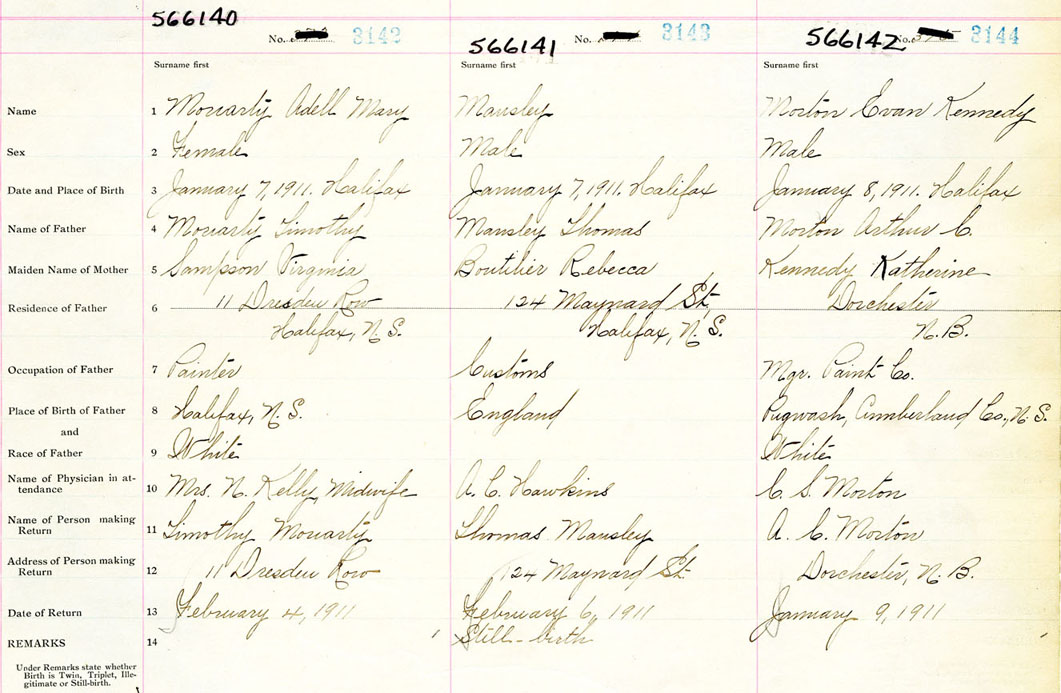 566140 566141 566142
No. 3142 No. 3143 No. 3144
Surname first Surname first Surname first
Name 1 Moriarty Adell Mary Mansley Morton Evan Kennedy
Sex 2 Female Male Male
Date and Place of Birth 3 January 7, 1911. Halifax January 7, 1911. Halifax January 8, 1911. Halifax
Name of Father 4 Moriarty Timothy Mansley Thomas Morton Arthur C.
Maiden Name of Mother 5 Sampson Virginia Boutilier Rebecca Kennedy Katherine
Residence of Father 6 11 Dresden Row 124 Maynard St, Dorchester
Halifax, N. S. Halifax, N. S. N. B.
Occupation of Father 7 Painter Customs Mgr. Paint Co.
Place of Birth of Father 8 Halifax, N. S. England Pugwash, Cumberland Co., N. S.
and
Race of Father 9 White White
Name of Physician in at-
tendance 10 Mrs. N. Kelly, Midwife A. C. Hawkins C. S. Morton
Name of Person making
Return 11 Timothy Moriarty Thomas Mansley A. C. Morton
Address of Person making
Return 12 11 Dresden Row 124 Maynard St. Dorchester, N. B.
Date of Return 13 February 4, 1911 February 6, 1911 January 9, 1911
REMARKS 14 Still-birth
Under Remarks state whether
Birth is Twin, Triplet, Ille-
gitimate or Still-birth.